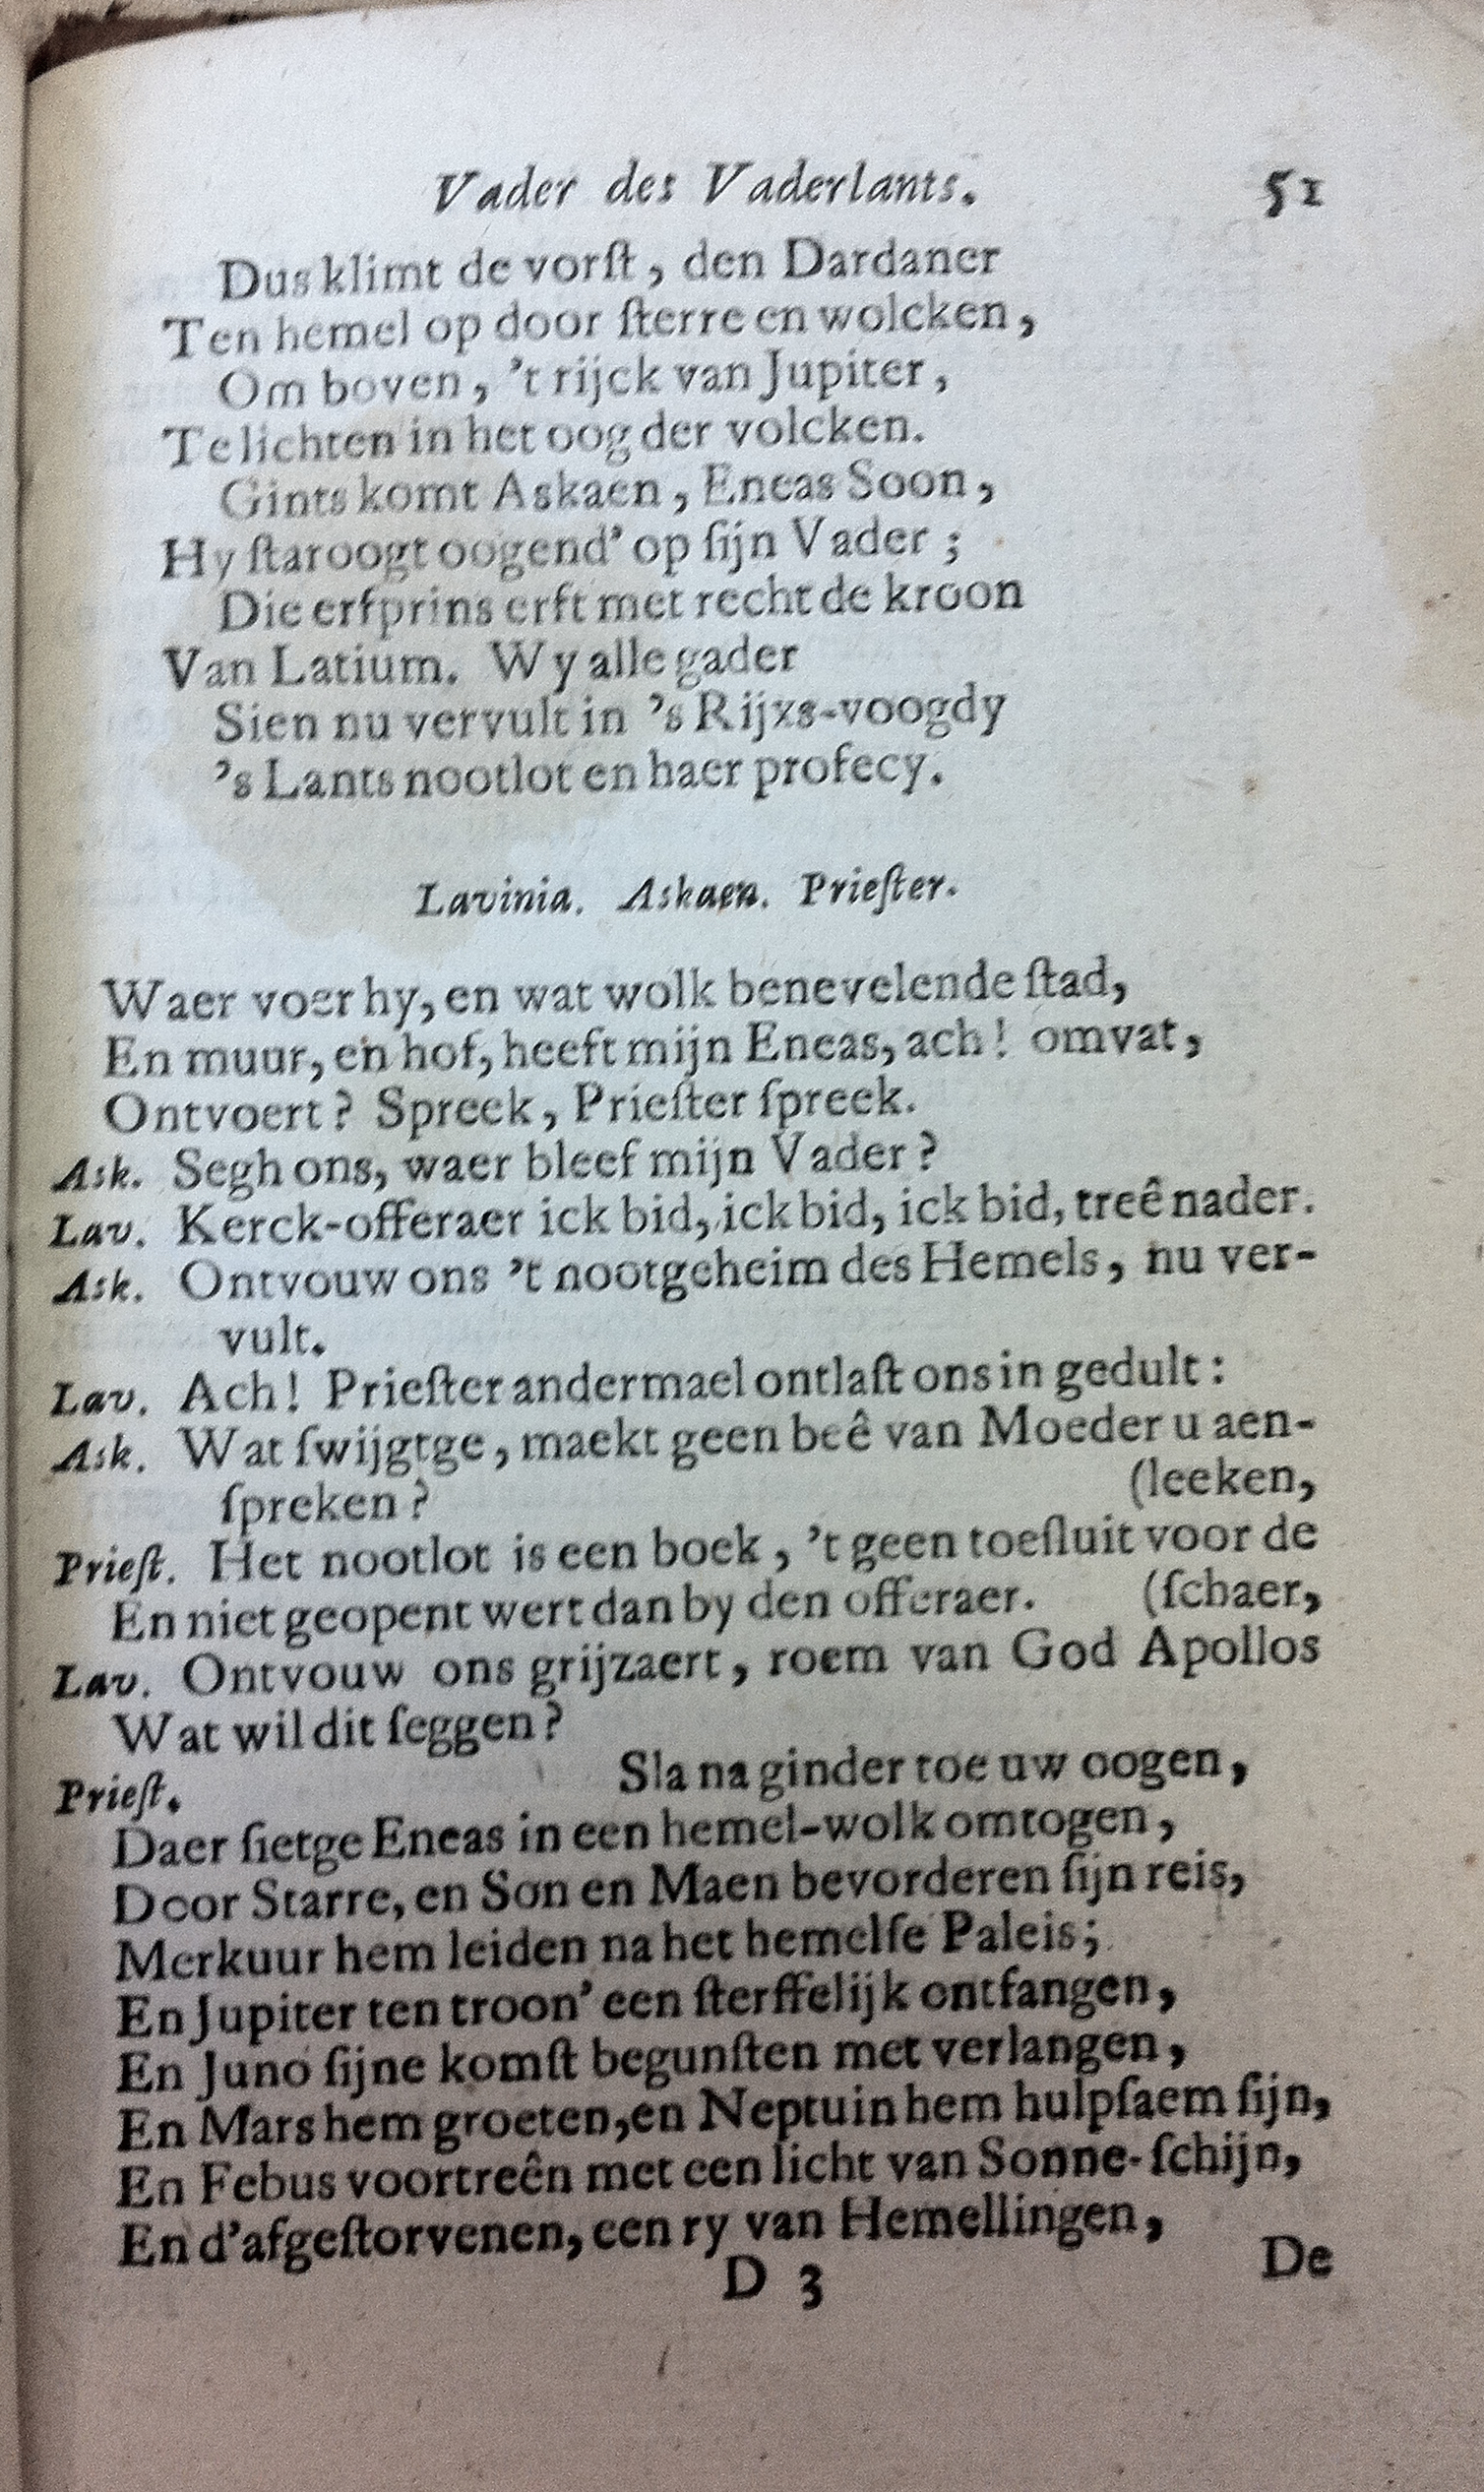 Vader des Vaderlants. 51
Dus klimt de vorſt, den Dardaner
Ten hemel op door ſterre en wolcken,
Om boven, 't rijck van Jupiter,
Te lichten in het oog der volcken.
Gints komt Askaen, Eneas Soon,
Hy ſtaroogt oogend' op ſijn Vader;
Die erfprins erft met recht de kroon
Van Latium. Wy alle gader
Sien nu vervult in 's Rijxs-voogdy
's Lants nootlot en haer profecy.
Lavinia. Askaen. Prieſter.
Waer voer hy, en wat wolk benevelende ſtad,
En muur, en hof, heeft mijn Eneas, ach! omvat,
Ontvoert? Spreek, Prieſter ſpreek.
Ask. Segh ons, waer bleef mijn Vader?
Lav. Kerck-offeraer ick bid, ick bid, ick bid, treê nader.
Ask. Ontvouw ons 't nootgeheim des Hemels, nu ver-
vult.
Lav. Ach! Prieſter andermael ontlaſt ons in gedult:
Ask. Wat ſwijgtge, maekt geen beê van Moeder u aen-
ſpreken? (leeken,
Prieſt. Het nootlot is een boek, 't geen toeſluit voor de
En niet geopent wert dan by den offeraer. (ſchaer,
Lav. Ontvouw ons grijzaert, roem van God Apollos
Wat wil dit ſeggen?
Prieſt. Sla na ginder toe uw oogen,
Daer ſietge Eneas in een hemel-wolk omtogen,
Door Starre, en Son en Maen bevorderen ſijn reis,
Merkuur hem leiden na het hemelſe Paleis;
En Jupiter ten troon' een ſterffelijk ontfangen,
En Juno ſijne komſt begunſten met verlangen,
En Mars hem groeten, en Neptuin hem hulpſaem ſijn,
En Febus voortreên met een licht van Sonne-ſchijn,
En d'afgeſtorvenen, een ry van Hemellingen,
D 3 De